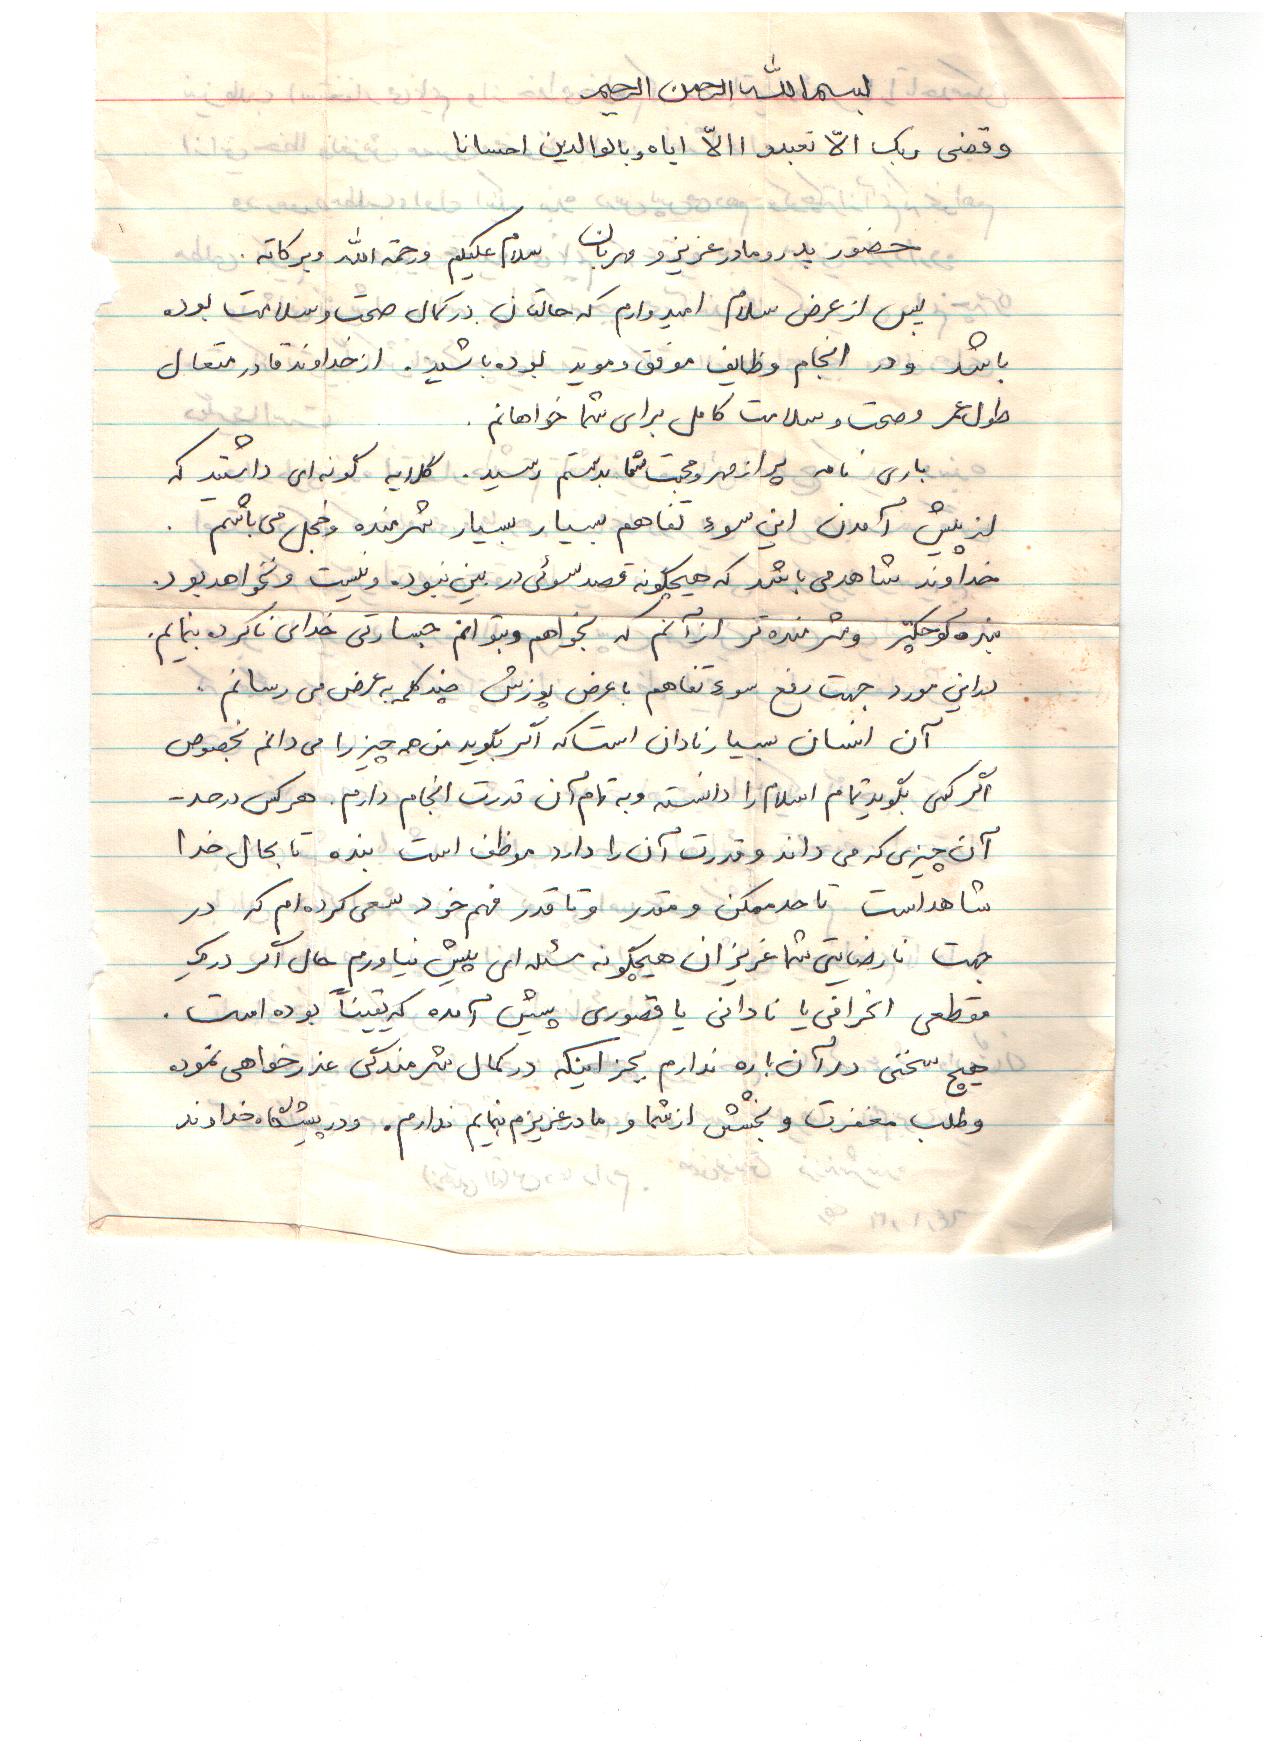 بسم الله الرحمن الرحیم
و قضی ربک الّا تعبدوا الّا ایاه و بالوالدین احسانا
حضور پدر و مادر عزیز و مهربان سلام علیکم و رحمة الله و برکاته .
پس از عرض سلام امیدوارم که حالتان در کمال صحت و سلامت بوده
باشد و در انجام وظایف موفق و موید بوده باشید . از خداوند قادر متعال
طول عمر و صحت و سلامت کامل برای شما خواهانم .
باری نامه پر از مهر و محبت شما بدستم رسید . گلایه گونه ای داشتید که
از پیش آمدن این سوء تفاهم بسیار بسیار شرمنده و خجل می باشم .
خداوند شاهد می باشد که هیچگونه قصد سوئی در بین نبوده و نیست و نخواهد بود .
بنده کوچکتر و شرمنده تر از آنم که بخواهم و بتوانم جسارتی خدای ناکرده بنمایم .
در این مورد جهت رفع سوء تفاهم با عرض پوزش چند کلمه به عرض می رسانم .
آن انسان بسیار نادان است که اگر بگوید من همه چیز را می دانم بخصوص
اگر کسی بگوید تمام اسلام را دانسته و به تمام آن قدرت انجام دارم . هر کس در حد -
آن چیزی که می داند و قدرت آن را دارد موظف است بنده تا بحال خدا
شاهد است تا حد ممکن و مقدر و تا قدر فهم خود سعی کرده ام که در
جهت نارضایتی شما عزیزان هیچگونه مسئله ای پیش نیاورم حال اگر در یک
مقطعی انحرافی یا نادانی یا قصوری پیش آمده که یقیناً بوده است .
هیچ سخنی در آن باره ندارم بجز اینکه در کمال شرمندگی عذرخواهی نموده
و طلب مغفرت و بخشش از شما و مادر عزیزم بنمایم ندارم . و در پیشگاه خداوند